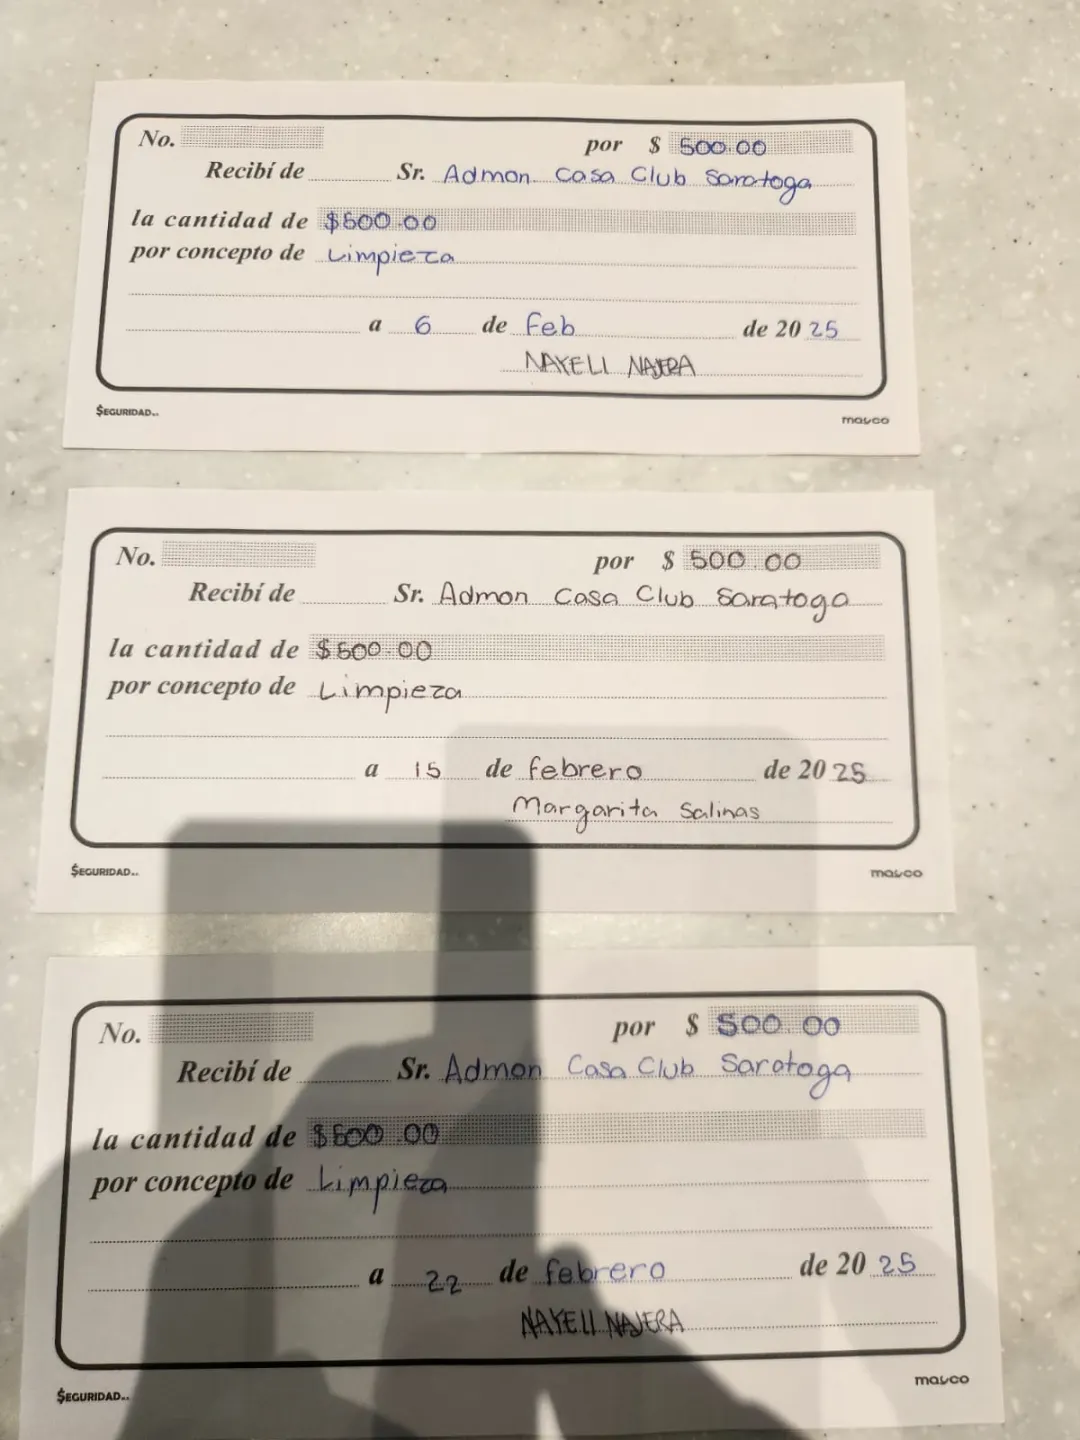 No. por $ 500.00
Recibí de Sr. Admon. Casa Club Saratoga
la cantidad de $500.00
por concepto de Limpieza
a 6 de Feb de 20 25
NAYELI NAJERA
$EGURIDAD.. mayco
No. por $ 500.00
Recibí de Sr. Admon Casa Club Saratoga
la cantidad de $500.00
por concepto de Limpieza
a 15 de febrero de 20 25
Margarita Salinas
$EGURIDAD.. mayco
No. por $ 500.00
Recibí de Sr. Admon Casa Club Saratoga
la cantidad de $500.00
por concepto de Limpieza
a 22 de febrero de 20 25
NAYELI NAJERA
$EGURIDAD.. mayco